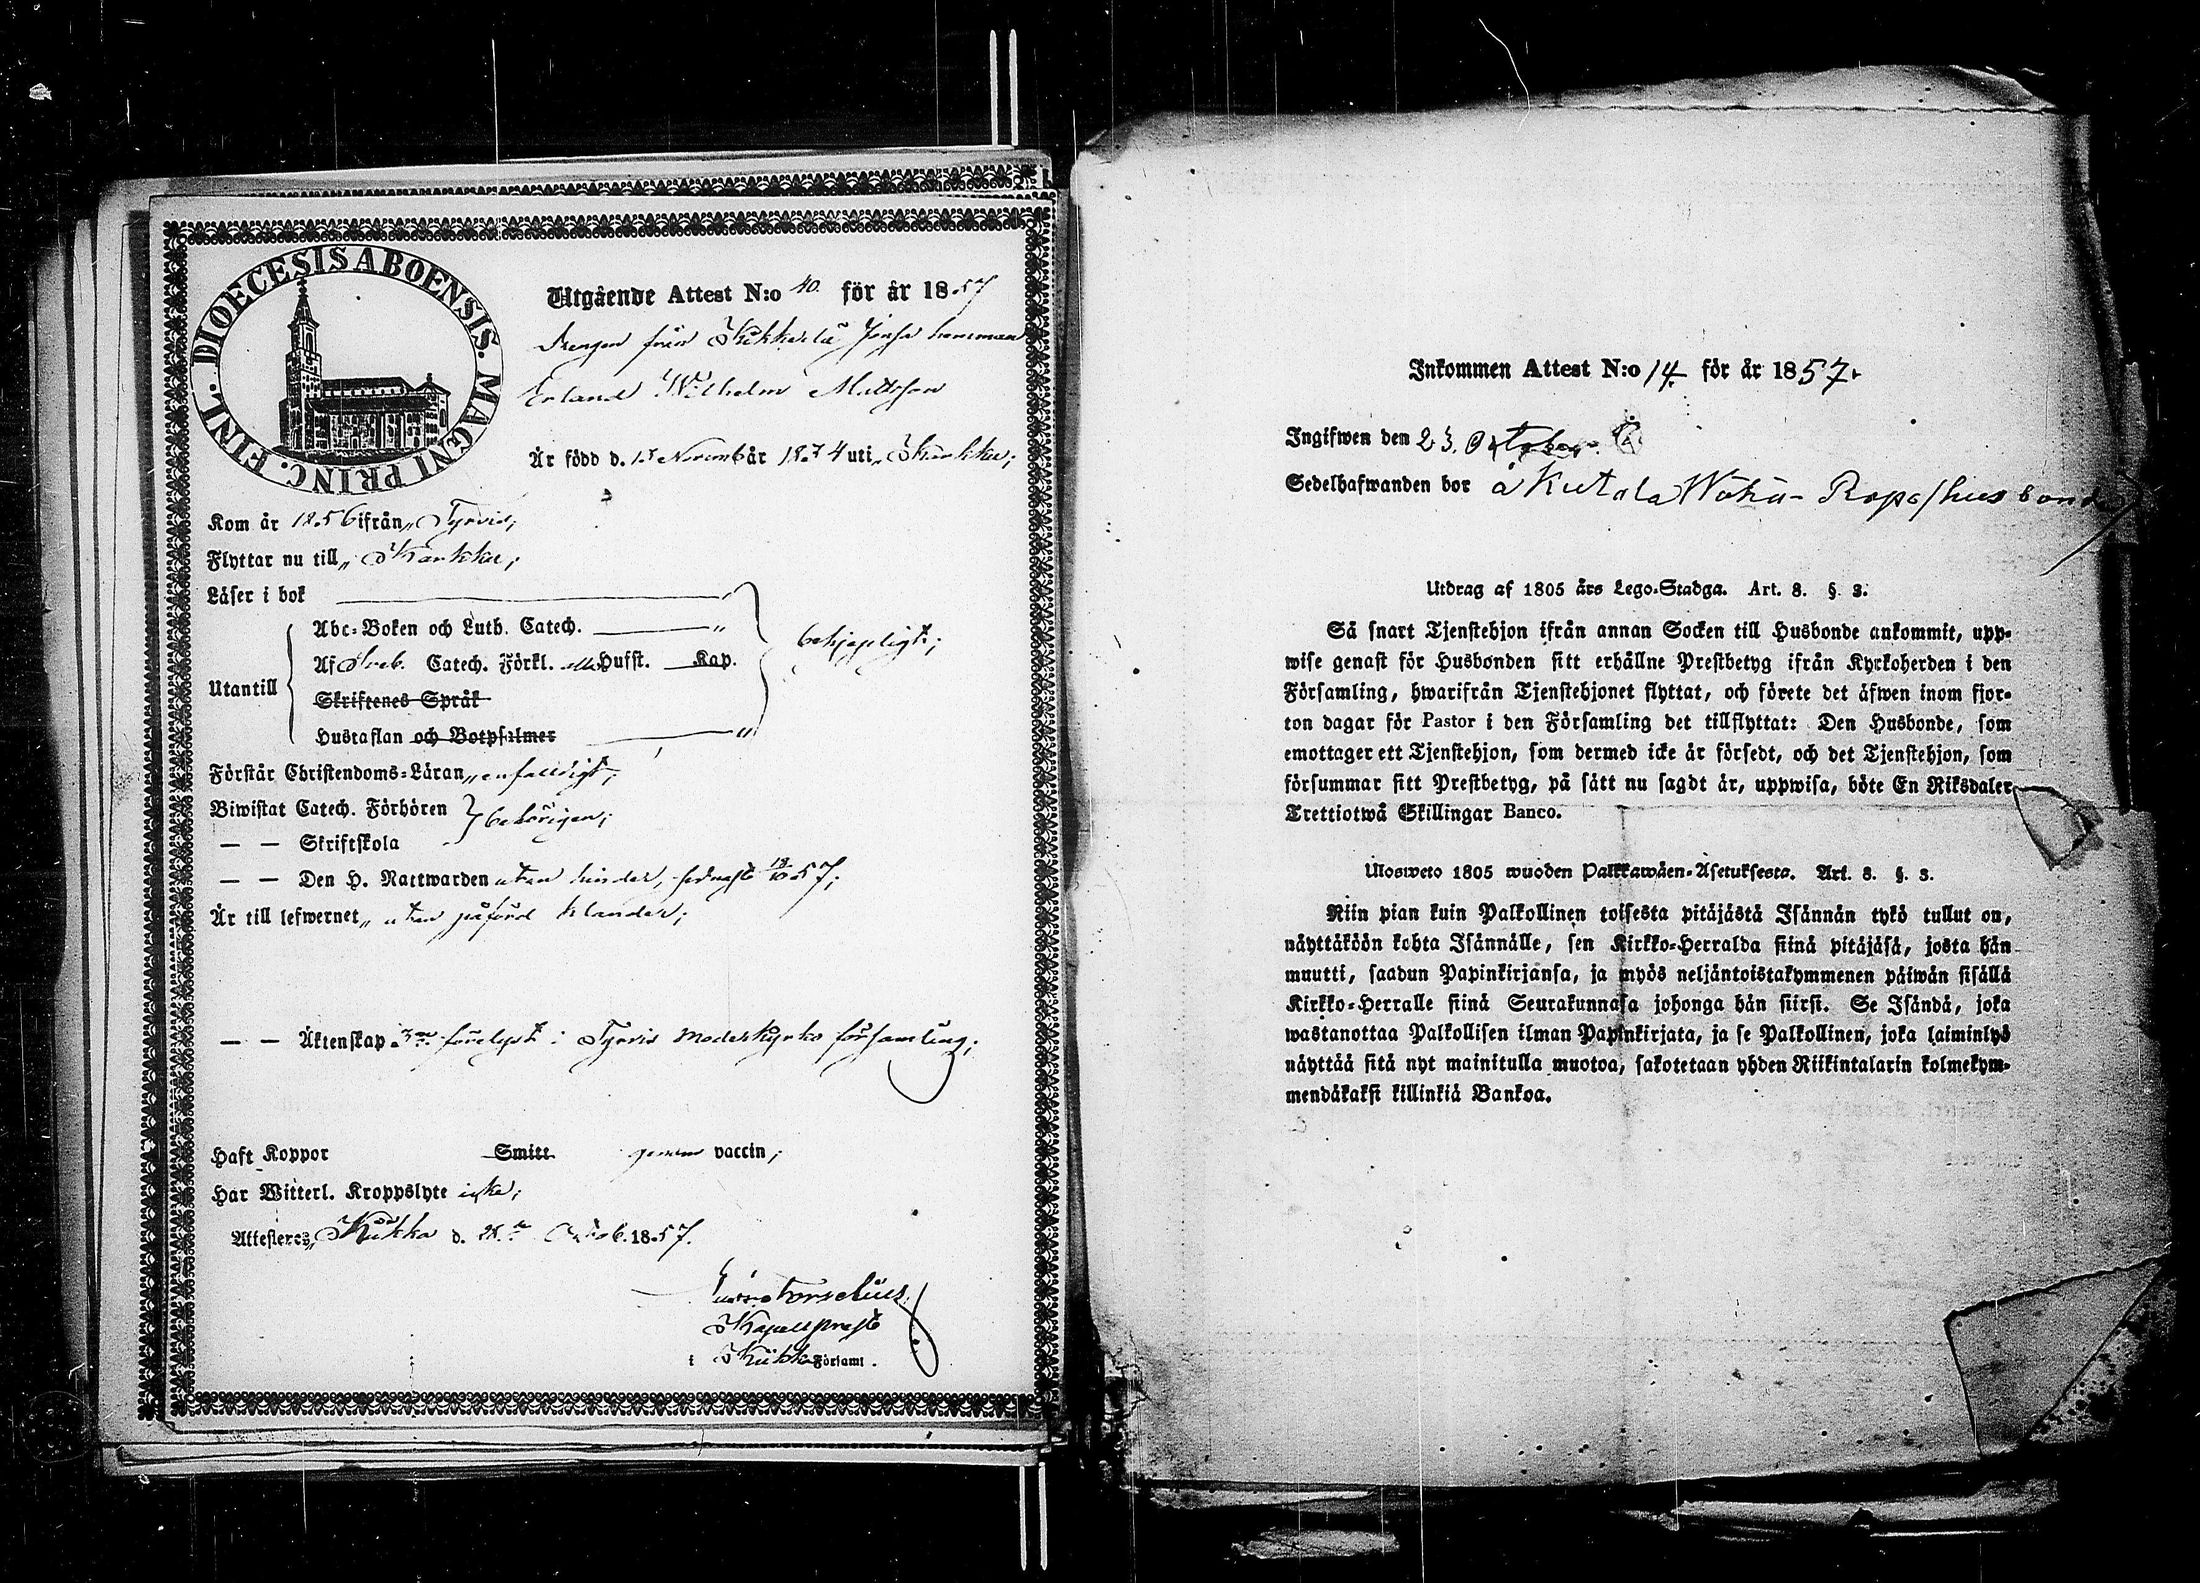 DIOECESIS ABOENSIS. MAGNI PRINC. FINL.
Utgående Attest N:o 40. för år 1857
Drengen från Kikkerlä Jonsa hemman
Erland Wilhelm Mattsson
År född d. Novemb år 18 4 uti Karkku;
Kom år 1856 ifrån Tyrvis;
Flyttar nu till Karkku;
Läser i bok
Abc-Boken och Luth. Catech.
Af Sveb. Catech. Förkl. alla Hufst. Kap.
behjepligt;
Utantill
Skriftenes Språk
Hustaflan och Botpsalmer
Förstår Christendoms-Läran enfaldigt;
Biwistat Catech. Förhören
behörigen;
— — Skriftskola
— — Den H. Nattwarden utan hinder, sednast 18/10 57;
Är till lefwernet utan påförd klander;
— — Äktenskap 3ne förelyst i Tyrvis Moderkyrko församling;
Haft Koppor Smitt genom vaccin;
Har Witterl. Kroppslyte icke;
Attesteras, Kiikka d. Octob. 1857.
Forselius
Kapellprest
i Kiikka Församl.
Inkommen Attest N:o 14. för år 1857.
Ingifwen den 23. October.
Sedelhafwanden bor å Kutala Wähä-Ropo/husbonde/
Utdrag af 1805 års Lego-Stadga. Art. 8. §. 3.
Så snart Tjenstehjon ifrån annan Socken till Husbonde ankommit, upp-
wise genast för Husbonden sitt erhållne Prestbetyg ifrån Kyrkoherden i den
Församling, hwarifrån Tjenstehjonet flyttat, och förete det äfwen inom fjor-
ton dagar för Pastor i den Församling det tillflyttat: Den Husbonde, som
emottager ett Tjenstehjon, som dermed icke är försedt, och det Tjenstehjon, som
försummar sitt Prestbetyg, på sätt nu sagdt är, uppwisa, böte En Riksdaler
Trettiotwå Skillingar Banco.
Ulosweto 1805 wuoden Palkkawäen-Asetuksesta. Art. 8. §. 3.
Niin pian kuin Palkollinen toisesta pitäjästä Isännän tykö tullut on,
näyttäköön kohta Isännälle, sen Kirkko-Herralda siinä pitäjäsä, josta hän
muutti, saadun Papinkirjansa, ja myös neljäntoistakymmenen päiwän sisällä
Kirkko-Herralle siinä Seurakunnasa johonga hän siirsi. Se Isändä, joka
wastanottaa Palkollisen ilman Papinkirjata, ja se Palkollinen, joka laiminlyö
näyttää sitä nyt mainitulla muotoa, sakotetaan yhden Riikintalarin kolmekym-
mendäkaksi killinkiä Bankoa.